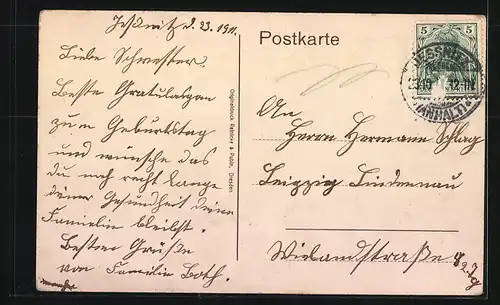 Jeßnitz d. 23. 1911.
Liebe Schwester.
Beste Gratulazion
zum Geburtstag
und wünsche das
du noch recht lange
deiner Gesundheit deine
Familie bleibst.
Besten Grüße
von Familie Both.
Originaldruck Kebbiner & Pohle, Dresden
Postkarte
5 5
JESSNITZ
(ANHALT)
An
Herrn Hermann Schlag
Leipzig Lindenau
Wielandstraße